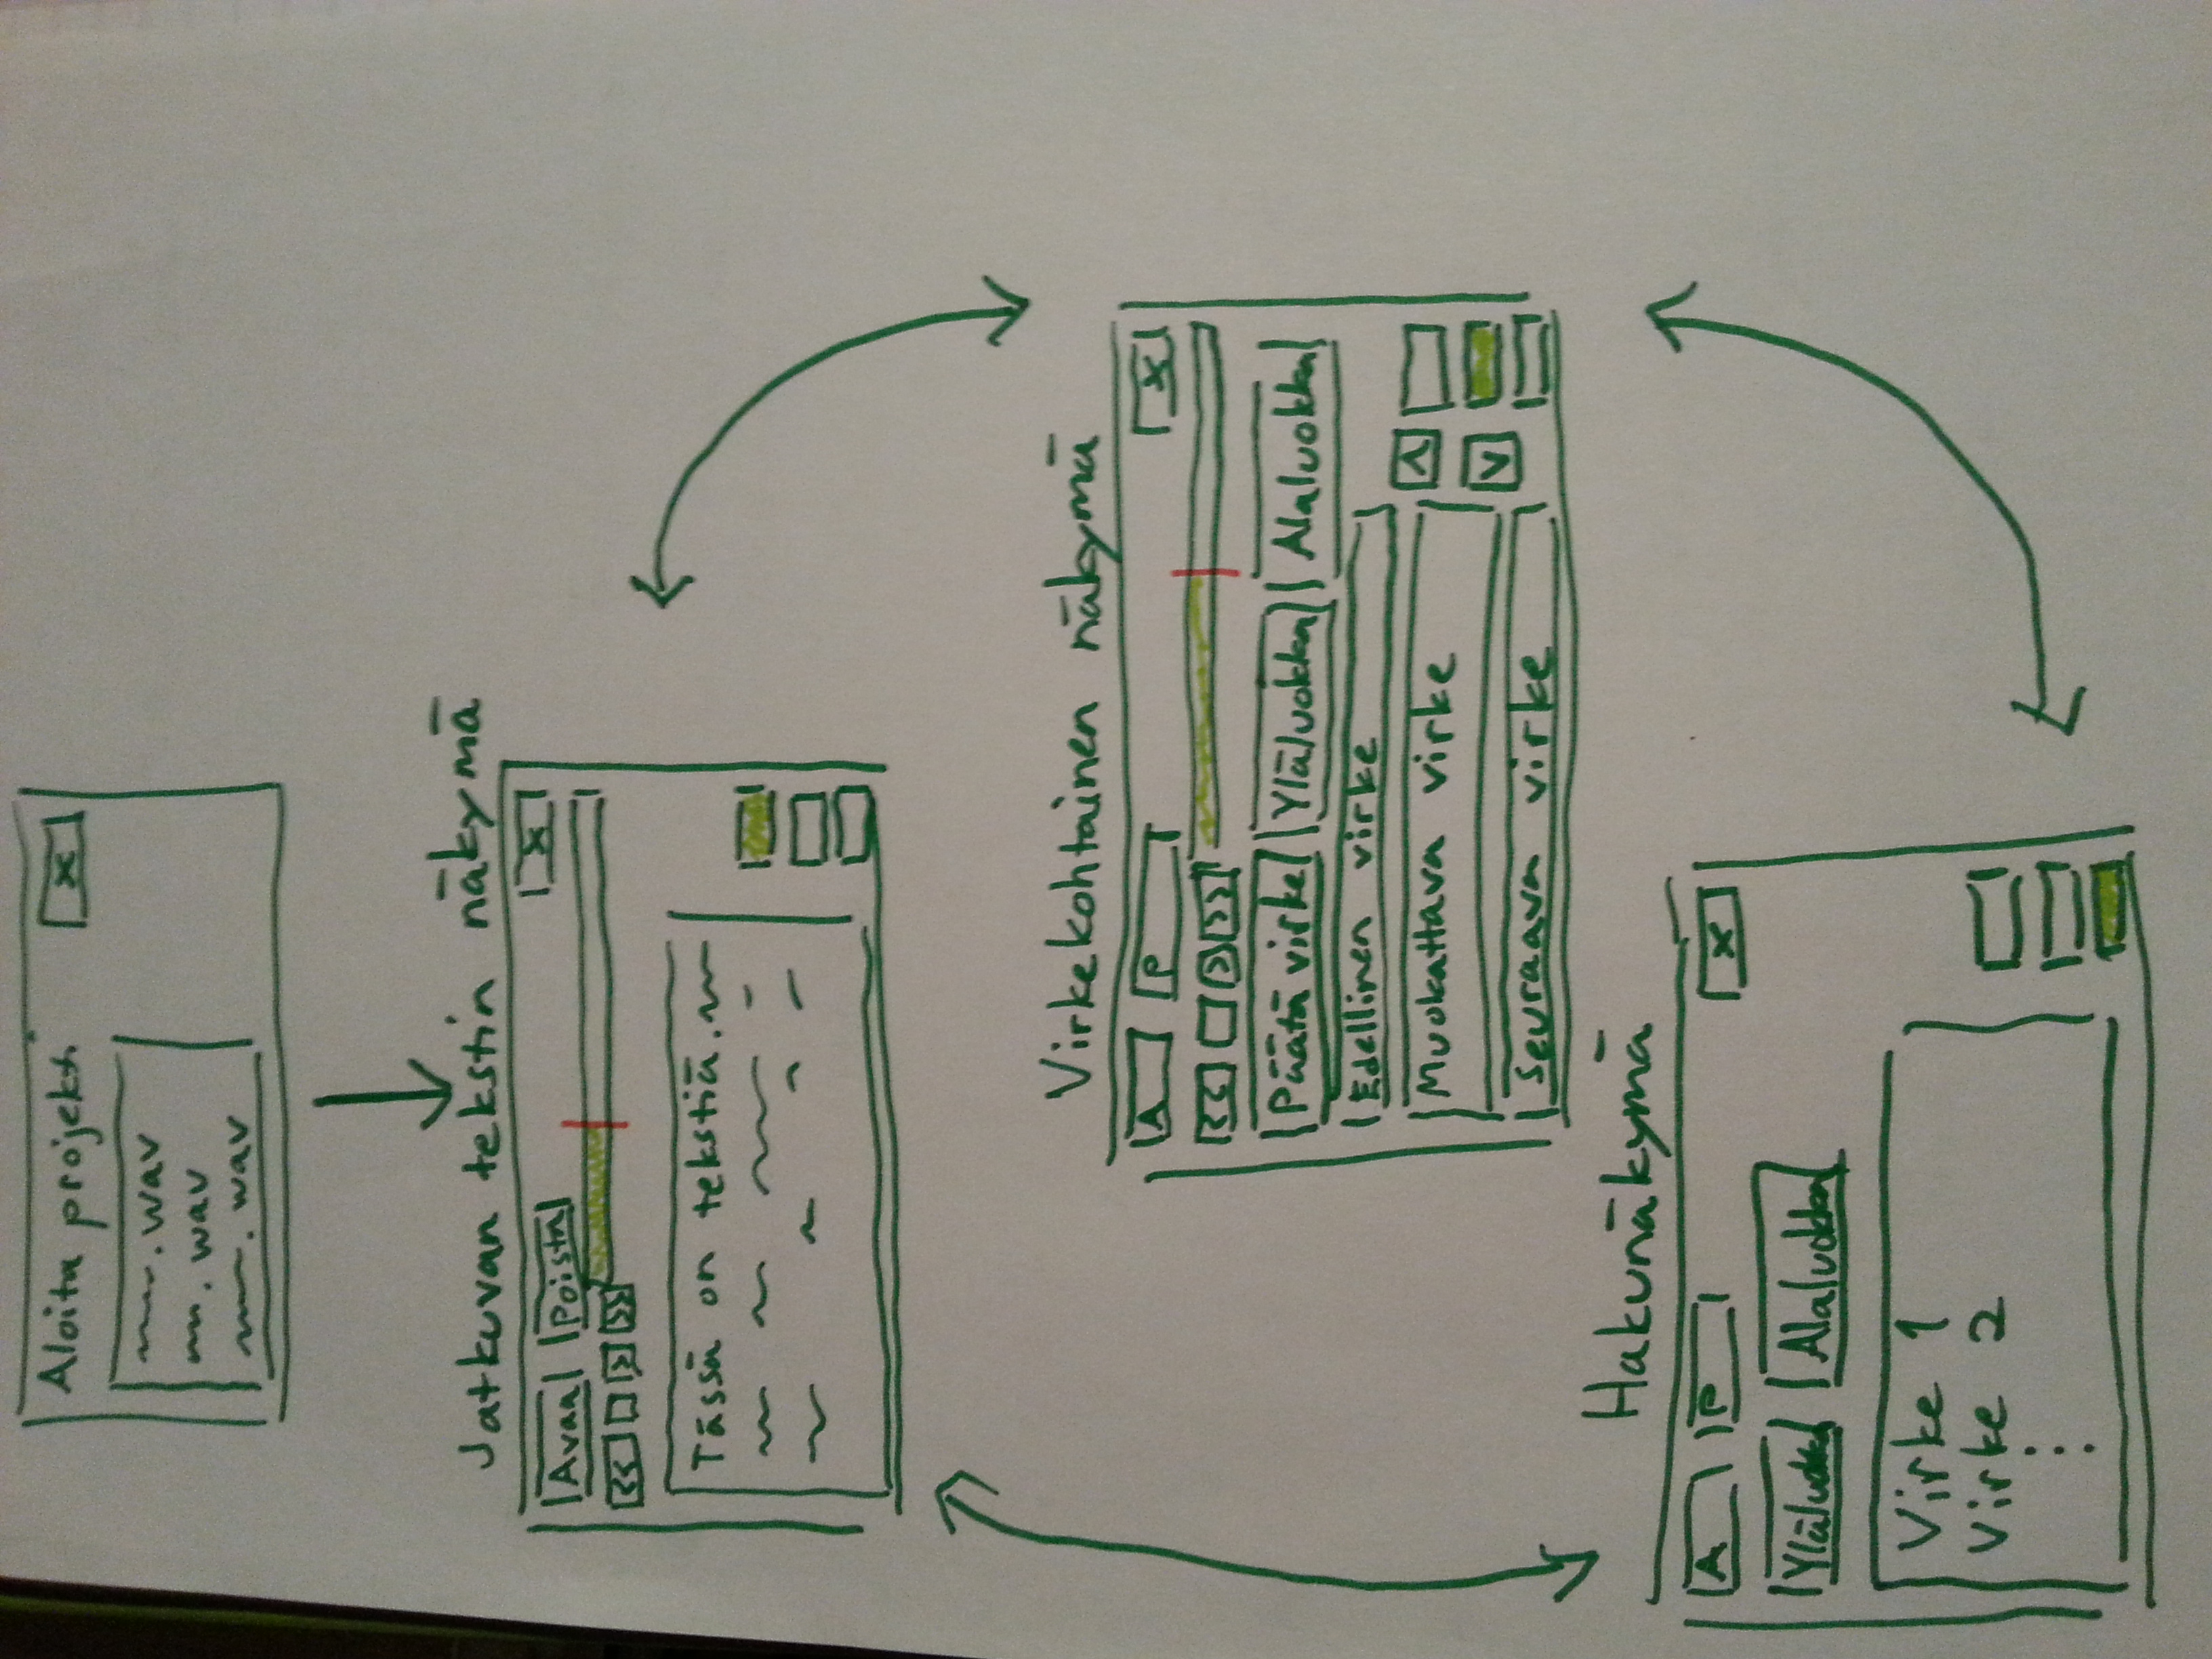 Aloita projekti
X
.wav
.wav
.wav
Jatkuvan tekstin näkymä
Avaa Poista X
<< > >>
Tässä on tekstiä.
Virkekohtainen näkymä
A P X
<< > >>
Päätä virke Yläluokka Alaluokka
Edellinen virke
Muokattava virke
Seuraava virke
Hakunäkymä
A P X
Yläluokka Alaluokka
Virke 1
Virke 2